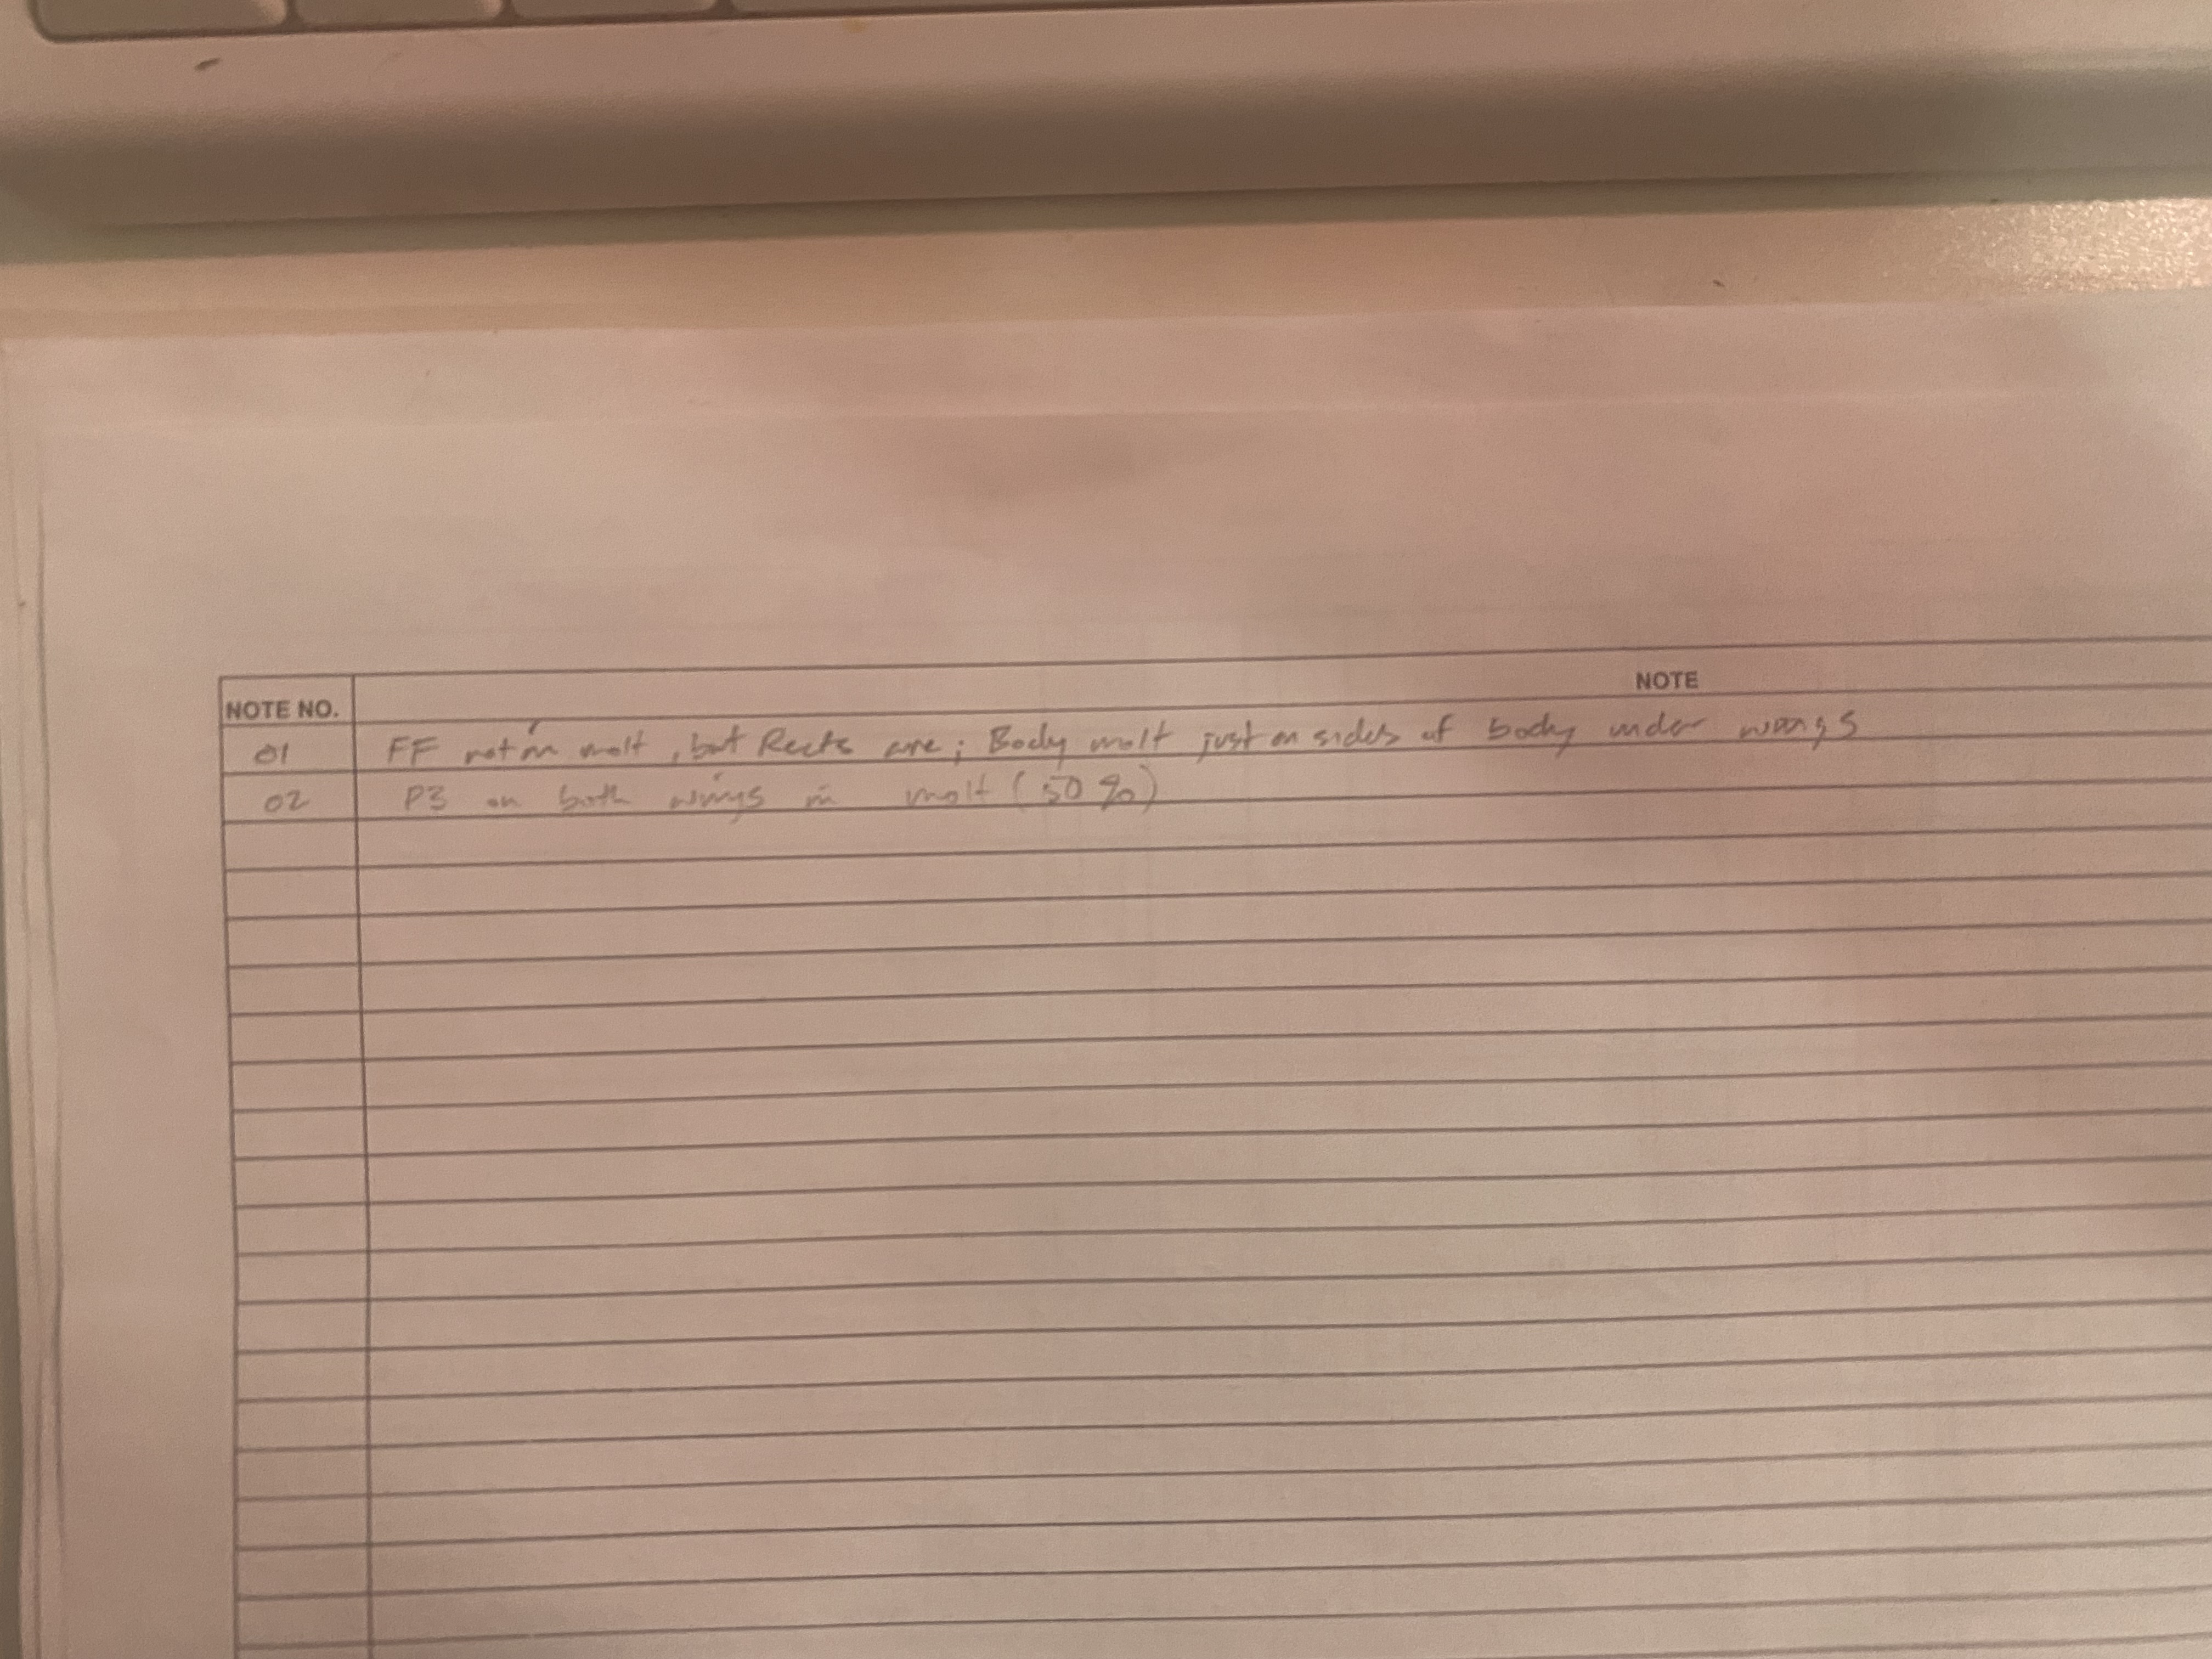 NOTE NO. NOTE
01 FF not in molt, but Rects are; Body molt just on sides of body under wings
02 P3 on both wings in molt (50%)